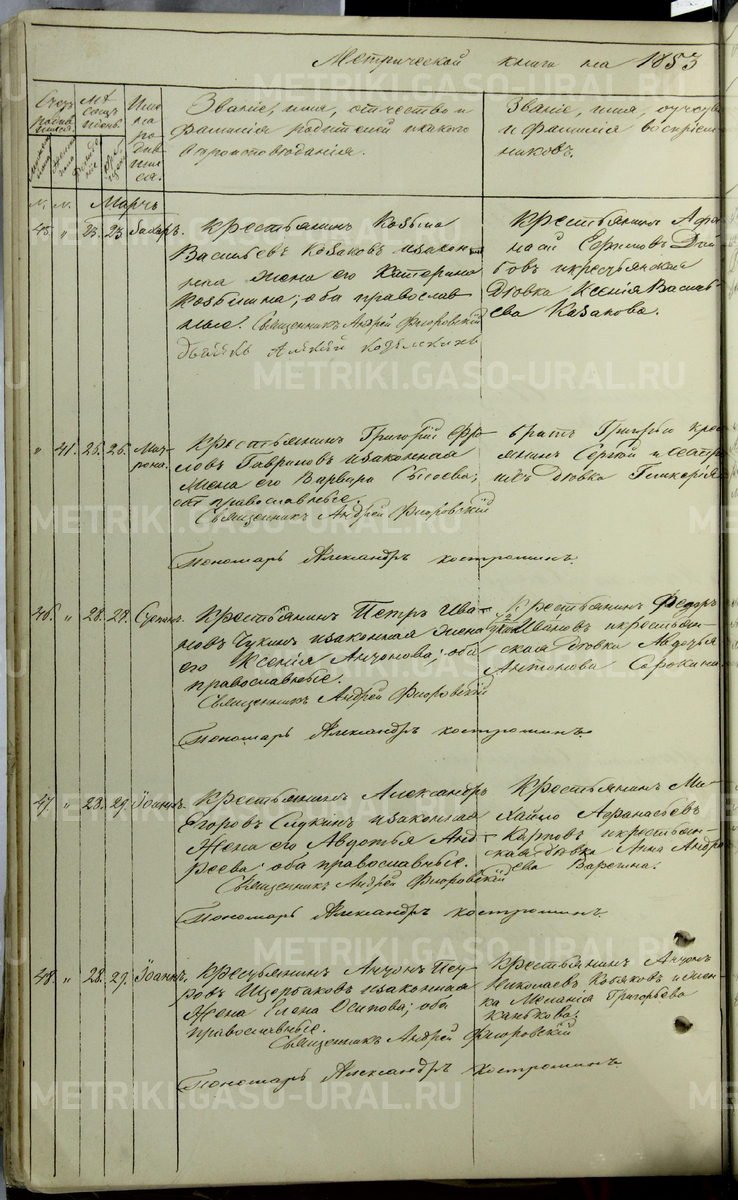 Метрической книги на 1853
Счетъ родив шихся.
Мѣ сяцъ и день.
Име на ро див ших ся.
Званіе, имя, отчество и
фамилія родителей и какого
вѣроисповѣданія.
Званіе, имя, отчество
и фамилія воспріем
никовъ.
М. М. Мартъ
45. " 23. 23 Захаръ.
Крестьянинъ Козьма
Васильевъ Козаковъ и закон
ная жена его Катерина
Козьмина; оба православ
ные. Священникъ Андрей Флоровскій
дьячекъ Алексѣй
Крестьянинъ Афа
насій Ефимовъ
бовъ и крестьянская
дѣвка Ксенія Василь
ева Казакова.
" 41. 25. 26. Мат
рона.
Крестьянинъ Григорій Фро
ловъ Гавриловъ и законная
жена его Варвара Сысоева;
оба православные.
Священникъ Андрей Флоровскій
Пономарь Александръ Костроминъ.
братъ Григорью крес
янинъ Сергѣй и сестра
ихъ дѣвка Гликерія
46. " 28. 29. Стефанъ.
Крестьянинъ Петръ Ива
новъ Чукинъ и законная жена
его Ксенія Антонова; оба
православные.
Священникъ Андрей Флоровскій
Пономарь Александръ Костроминъ.
Крестьянинъ Федоръ
Ивановъ и крестьян
ская дѣвка Авдотья
Антонова Сорокина
47 " 28. 29. Іоаннъ.
Крестьянинъ Александръ
Егоровъ Сидкинъ и законная
жена его Авдотья Анд
реева; оба православные.
Священникъ Андрей Флоровскій
Пономарь Александръ Костроминъ.
Крестьянинъ Ми
хайло Афанасьевъ
Карповъ и крестьян
ская дѣвка Анна Андре
ева Варегина.
48. " 28. 29. Іоаннъ.
Крестьянинъ Антонъ Пет
ровъ Щербаковъ и законная
жена Елена Осипова; оба
православные.
Священникъ Андрей Флоровскій
Пономарь Александръ Костроминъ.
Крестьянинъ Антонъ
Николаевъ и жен
ка Меланія Григорьева
Канькова.
METRIKI.GASO-URAL.RU